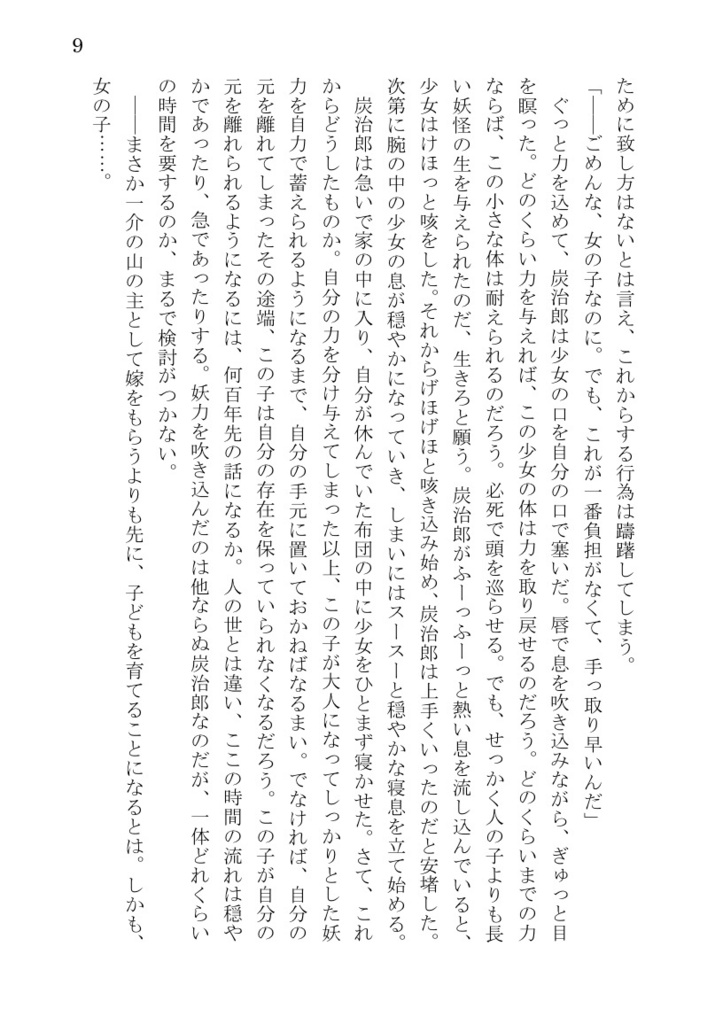 9
ために致し方はないとは言え、これからする行為は躊躇してしまう。
「――ごめんな、女の子なのに。でも、これが一番負担がなくて、手っ取り早いんだ」
ぐっと力を込めて、炭治郎は少女の口を自分の口で塞いだ。唇で息を吹き込みながら、ぎゅっと目
を瞑った。どのくらい力を与えれば、この少女の体は力を取り戻せるのだろう。どのくらいまでの力
ならば、この小さな体は耐えられるのだろう。必死で頭を巡らせる。でも、せっかく人の子よりも長
い妖怪の生を与えられたのだ、生きろと願う。炭治郎がふーっふーっと熱い息を流し込んでいると、
少女はけほっと咳をした。それからげほげほと咳き込み始め、炭治郎は上手くいったのだと安堵した。
次第に腕の中の少女の息が穏やかになっていき、しまいにはスースーと穏やかな寝息を立て始める。
炭治郎は急いで家の中に入り、自分が休んでいた布団の中に少女をひとまず寝かせた。さて、これ
からどうしたものか。自分の力を分け与えてしまった以上、この子が大人になってしっかりとした妖
力を自力で蓄えられるようになるまで、自分の手元に置いておかねばなるまい。でなければ、自分の
元を離れてしまったその途端、この子は自分の存在を保っていられなくなるだろう。この子が自分の
元を離れられるようになるには、何百年先の話になるか。人の世とは違い、ここの時間の流れは穏や
かであったり、急であったりする。妖力を吹き込んだのは他ならぬ炭治郎なのだが、一体どれくらい
の時間を要するのか、まるで検討がつかない。
――まさか一介の山の主として嫁をもらうよりも先に、子どもを育てることになるとは。しかも、
女の子……。